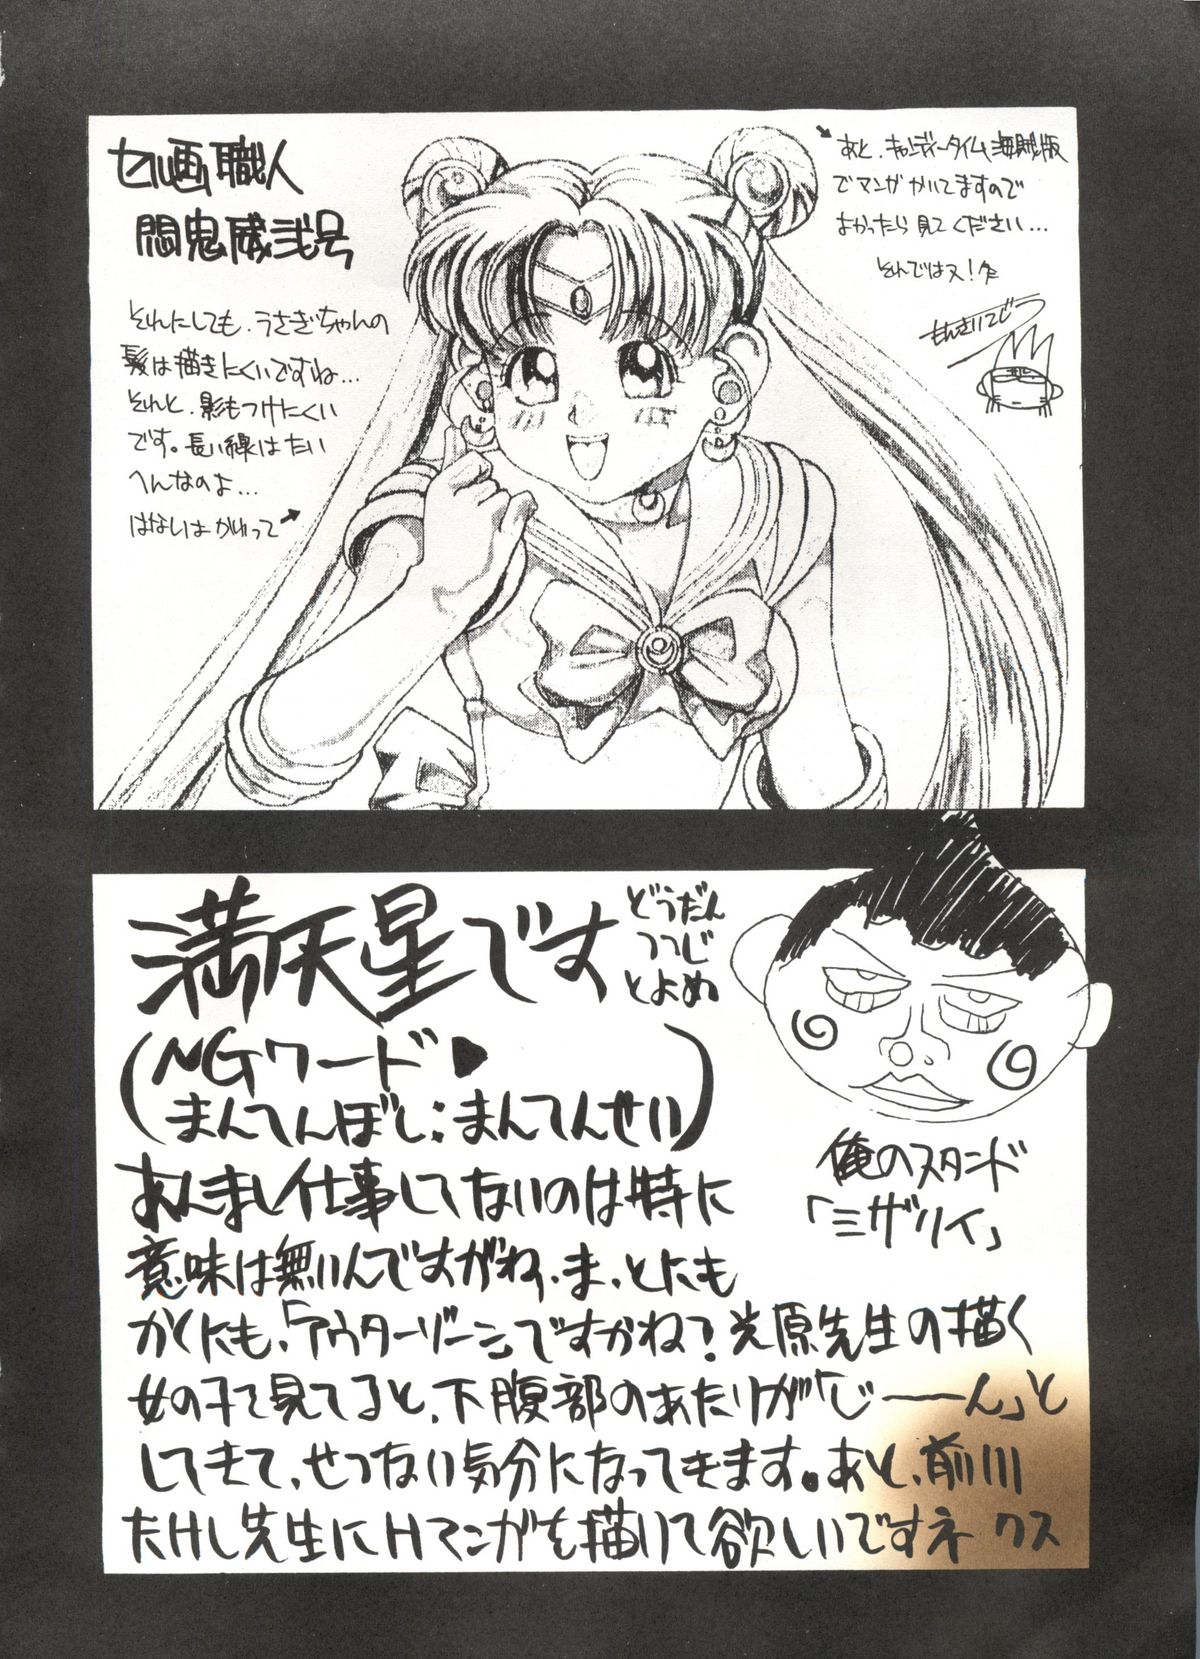 セル画職人
悶鬼威弐号
それにしても、うさぎちゃんの
髪は描きにくいですね…
それと、影もつけにくい
です。長い線はたい
へんなのよ…
はないはかいって
あと、キャンディータイム海賊版
でマンガかいてますので
よかったら見てください…
それではヌ!
もんきいにごう
満天星です
どうだん
つつじ
とよぬ
(NGワード♥
まんてんぼし:まんてんせい)
あんまし仕事してないのは特に
意味は無いんですがね、ま、とにも
かくにも、「アウターゾーン」ですかね?光原先生の描く
女の子て見てると、下腹部のあたりが「じーーん」と
してきて、せつない気分になってきます。あと、前川
たけし先生にHマンガを描いて欲しいですネ クス
俺のスタンド
「ミザリイ」